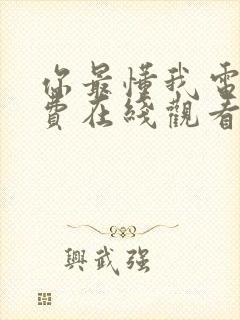 你最懂我電
費在綫觀看
興武强